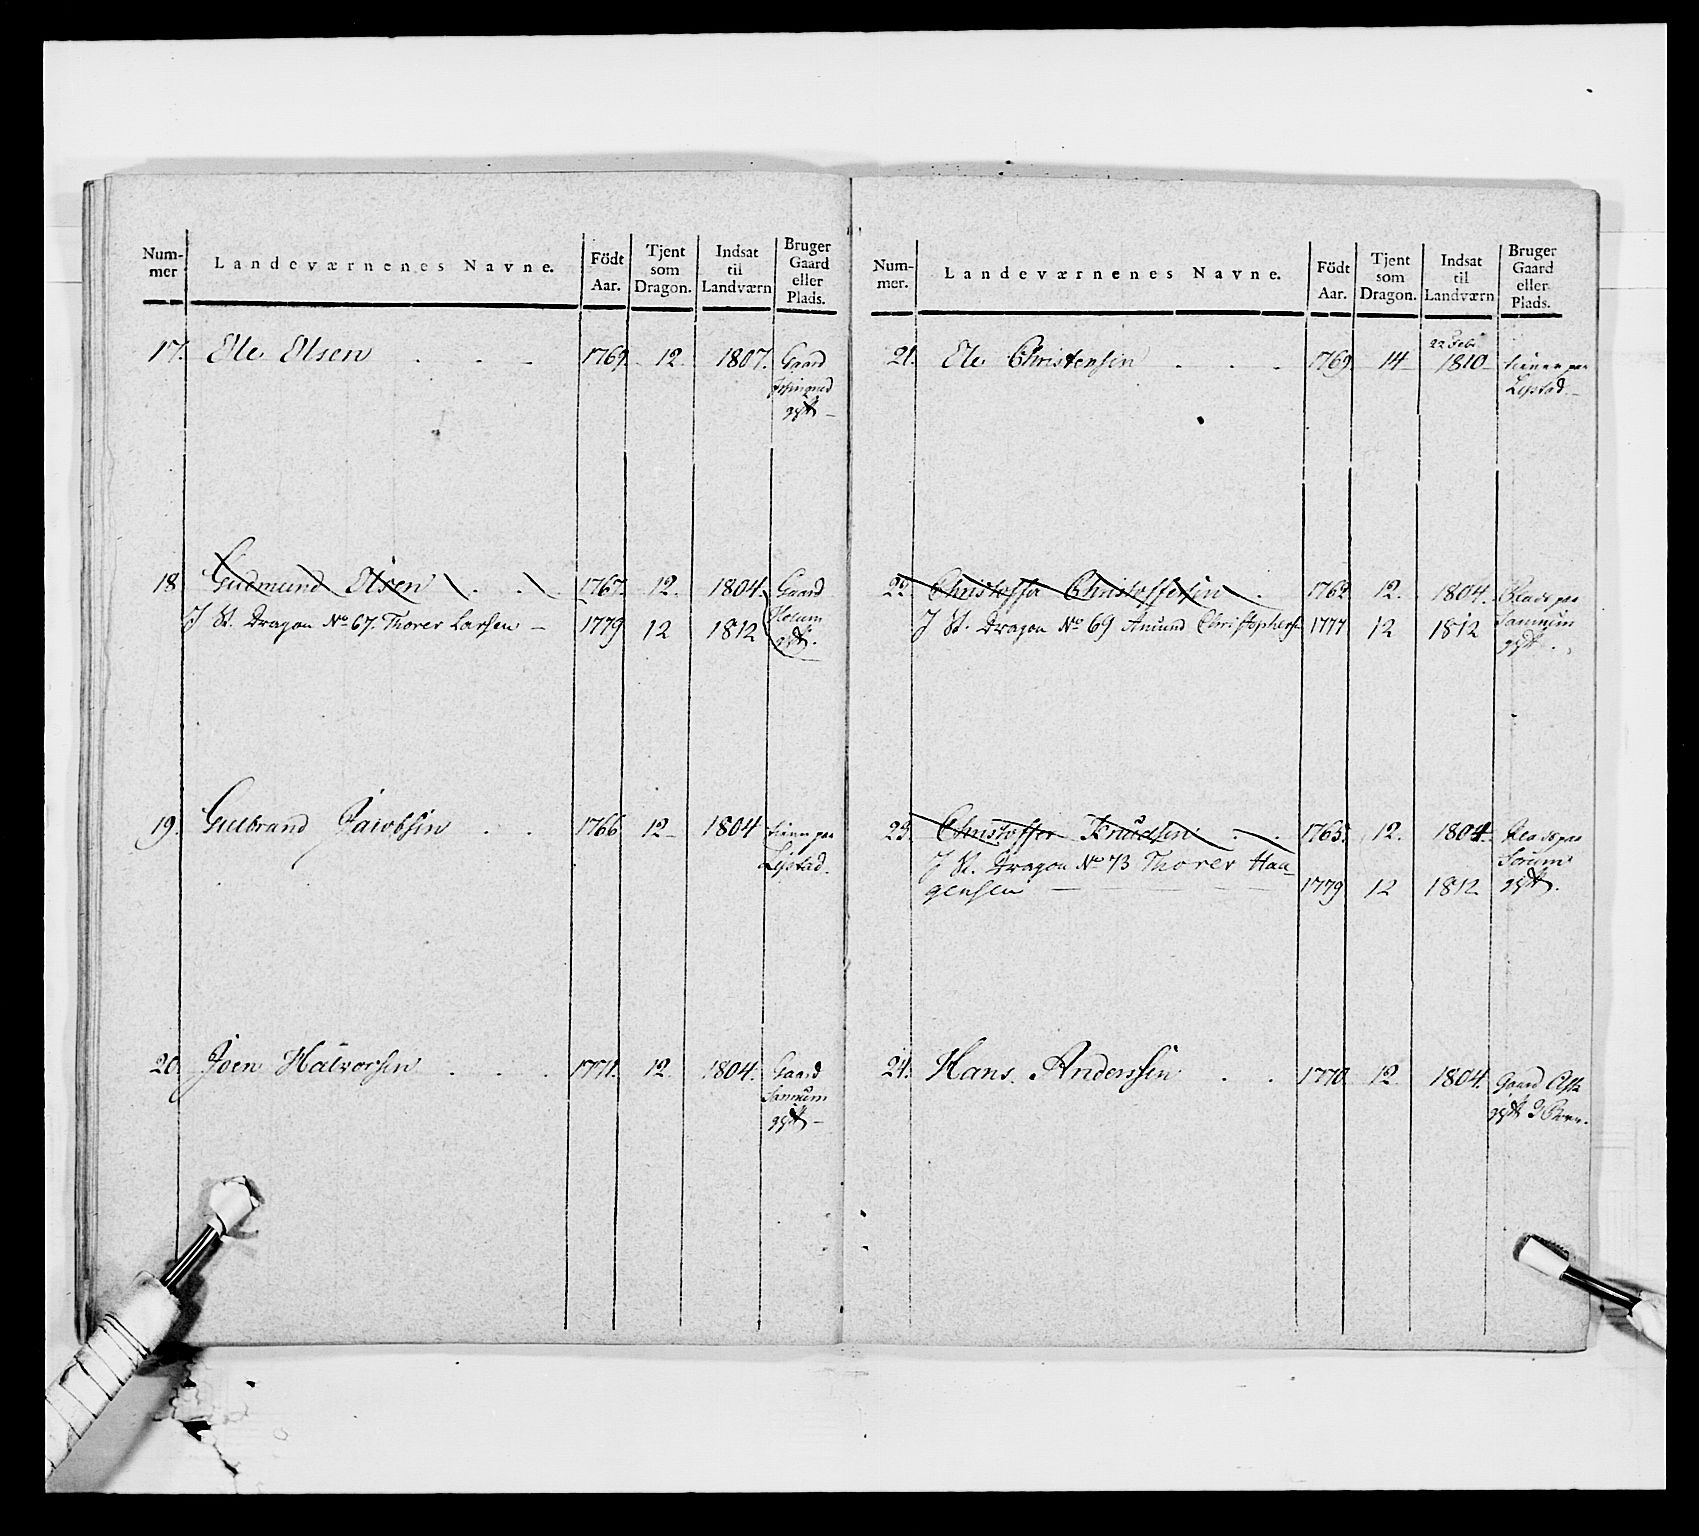 Num-
mer
Landeværnenes Navne.
Födt
Aar.
Tjent
som
Dragon.
Indsat
til
Landværn
Bruger
Gaard
eller
Plads.
17. Ole Olsen . . - 1769. 12. 1807. Gaard
gift -
18. Gudmund Olsen . . 1767. 12. 1804. Gaard
J St. Dragon No 67. Thorer Larsen - 1779 12 1812 Helum
gift.
19. Gulbrand Jacobsen . . 1766 12 - 1804 tiener paa
Lystad.
20. Joen Halvorsen . . . 1771. 12. 1804. Gaard
Sannum
gift -
Num-
mer.
Landeværnenes Navne.
Födt
Aar.
Tjent
som
Dragon.
Indsat
til
Landværn
Bruger
Gaard
eller
Plads.
22 Feb.
21. Ole Christensen . . . 1769 14 - 1810 - tiener paa
Lystad -
22. Christoffer Christoffersen . 1762 12. 1804. Plads paa
J St. Dragon No 69 Amund Christophers. 1777 12 1812 Sannum
gift .
23. Christoffer Knudsen . . 1765. 12. 1804. Plads paa
J St. Dragon No 73 Thorer Haa- Sörum
gensen - 1779 12 1812 gift.
24. Hans Anderssen . . 1770 12. 1804. Gaard
gift